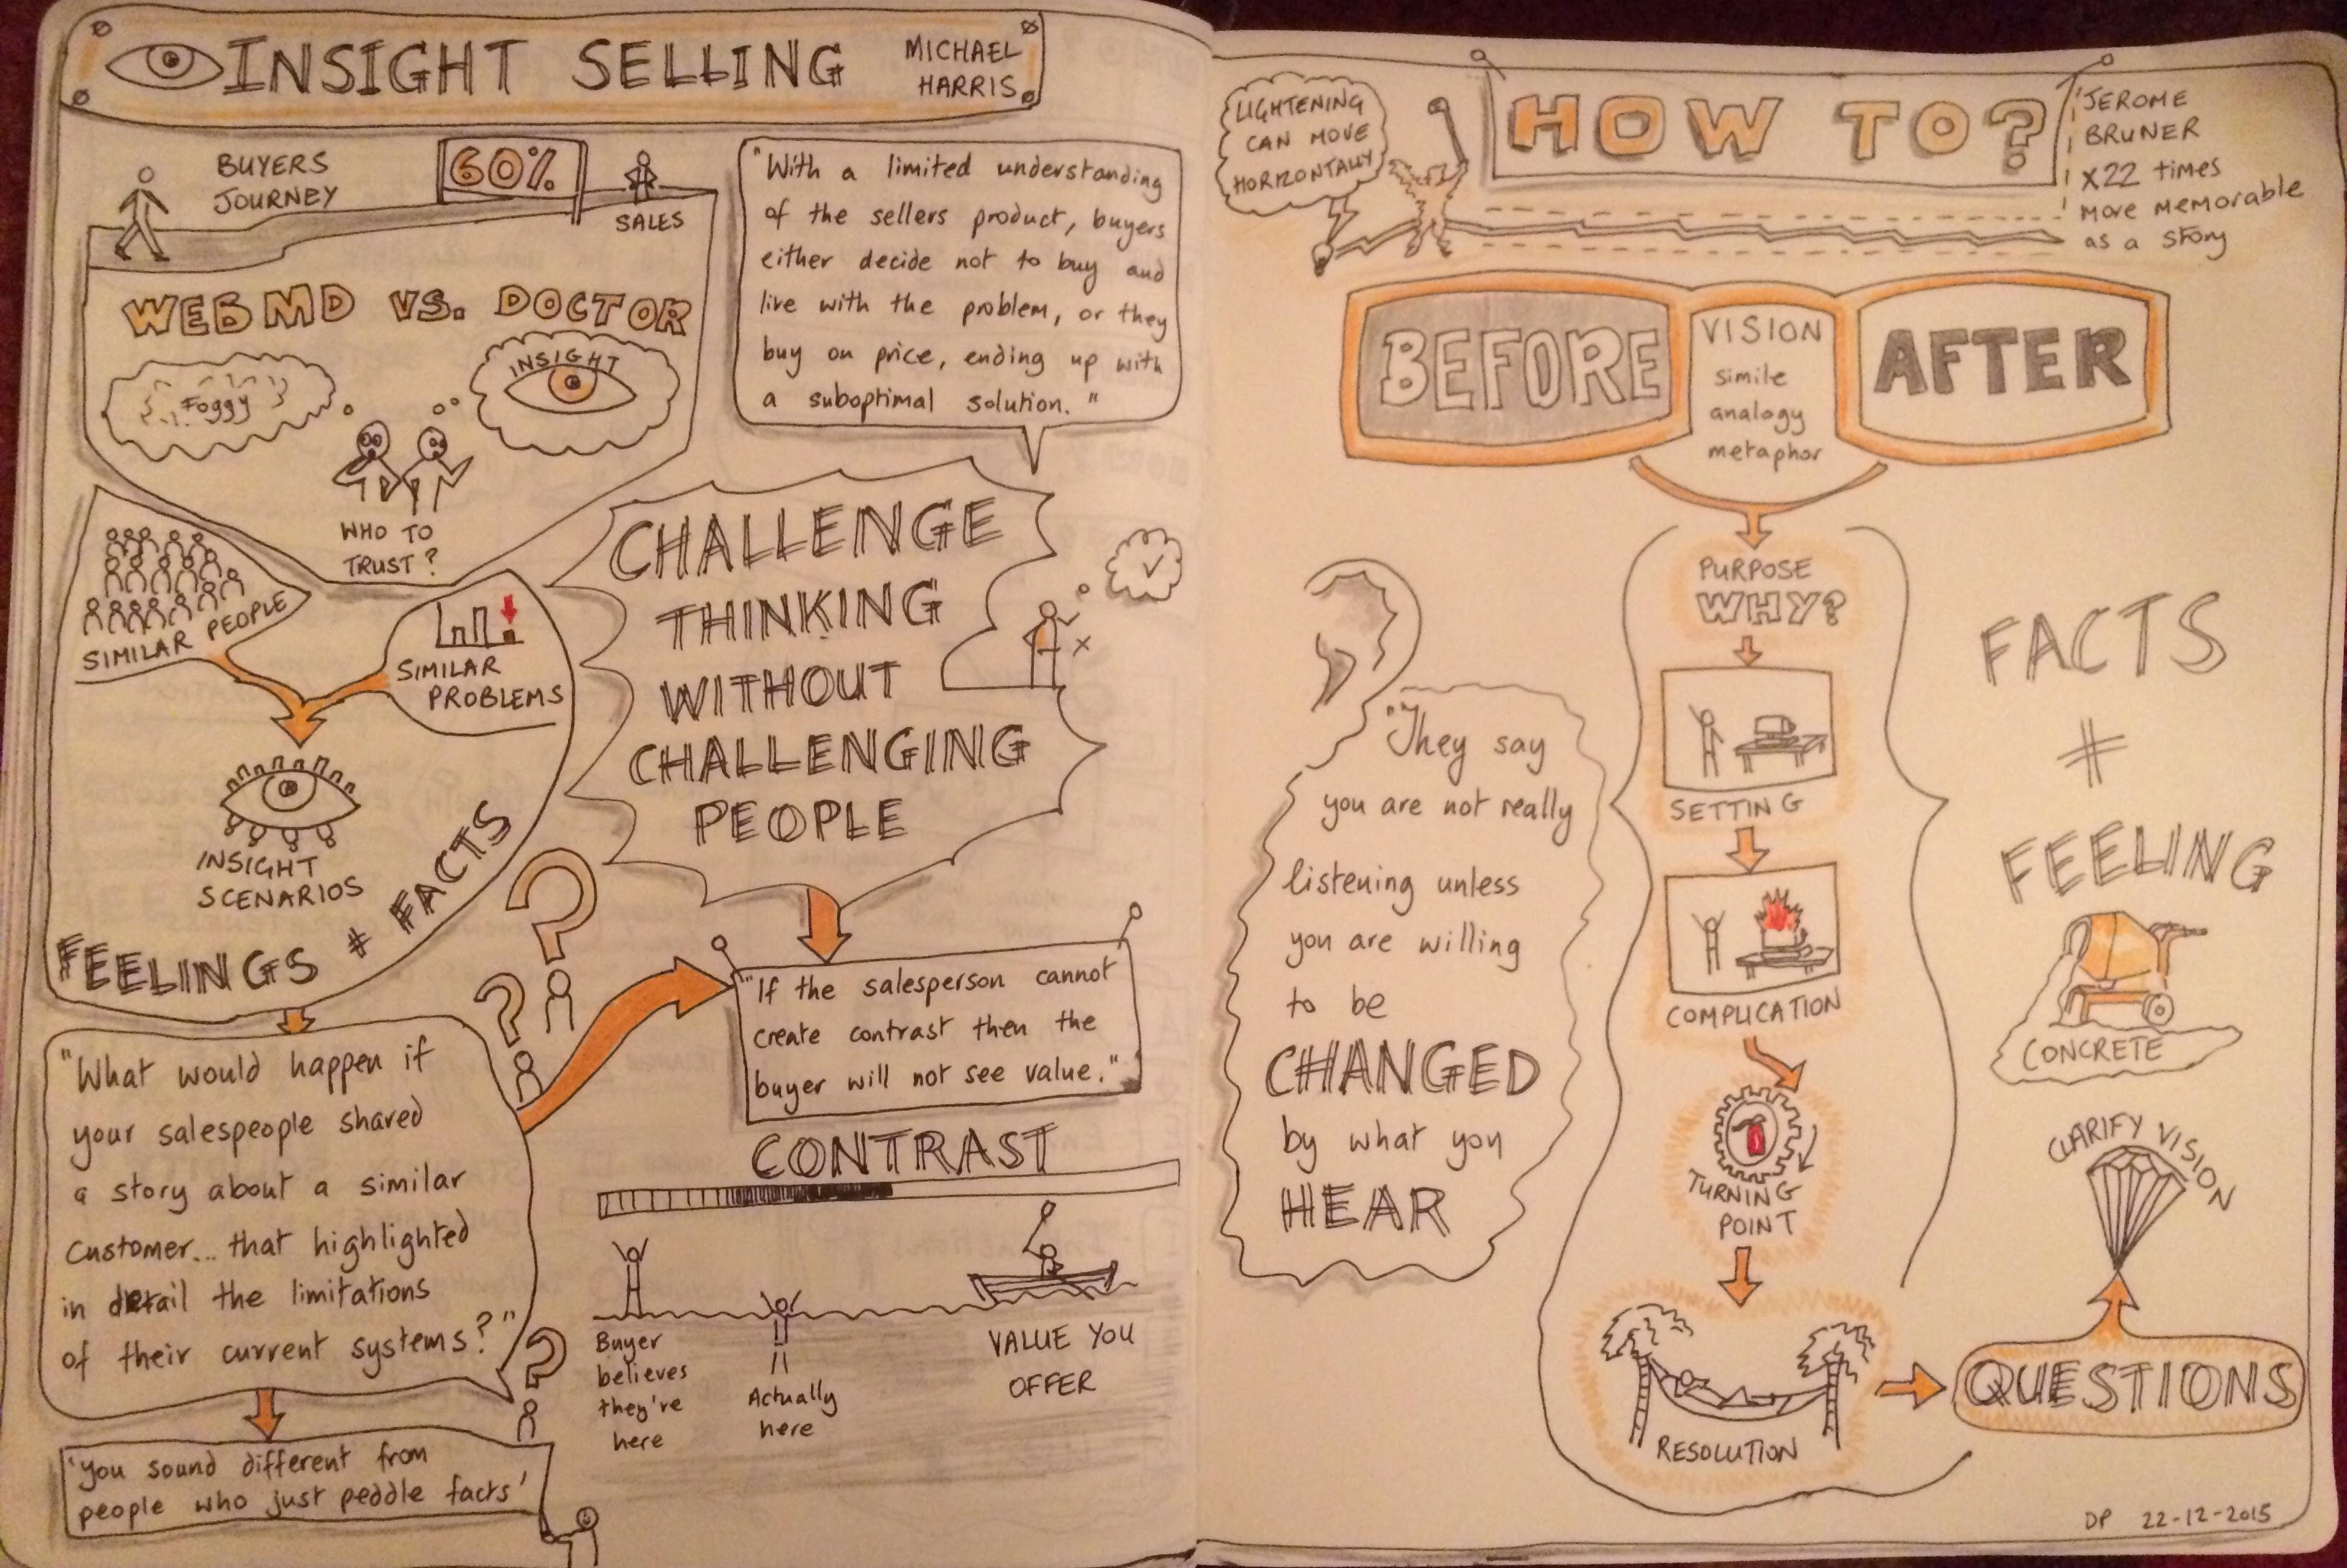 INSIGHT SELLING
MICHAEL
HARRIS
BUYERS
JOURNEY
60%
SALES
WEB MD VS. DOCTOR
Foggy
INSIGHT
WHO TO
TRUST?
"With a limited understanding
of the sellers product, buyers
either decide not to buy and
live with the problem, or they
buy on price, ending up with
a suboptimal solution."
SIMILAR PEOPLE
SIMILAR
PROBLEMS
INSIGHT
SCENARIOS
FEELINGS ≠ FACTS
CHALLENGE
THINKING
WITHOUT
CHALLENGING
PEOPLE
"What would happen if
your salespeople shared
a story about a similar
customer... that highlighted
in detail the limitations
of their current systems?"
?
?
?
'you sound different from
people who just peddle facts'
"If the salesperson cannot
create contrast then the
buyer will not see value."
CONTRAST
Buyer
believes
they're
here
Actually
here
VALUE YOU
OFFER
LIGHTENING
CAN MOVE
HORIZONTALLY
HOW TO?
JEROME
BRUNER
x22 times
more memorable
as a story
BEFORE
VISION
simile
analogy
metaphor
AFTER
PURPOSE
WHY?
SETTING
COMPLICATION
TURNING
POINT
RESOLUTION
"They say
you are not really
listening unless
you are willing
to be
CHANGED
by what you
HEAR
FACTS
≠
FEELING
CONCRETE
CLARIFY VISION
QUESTIONS
DP 22-12-2015